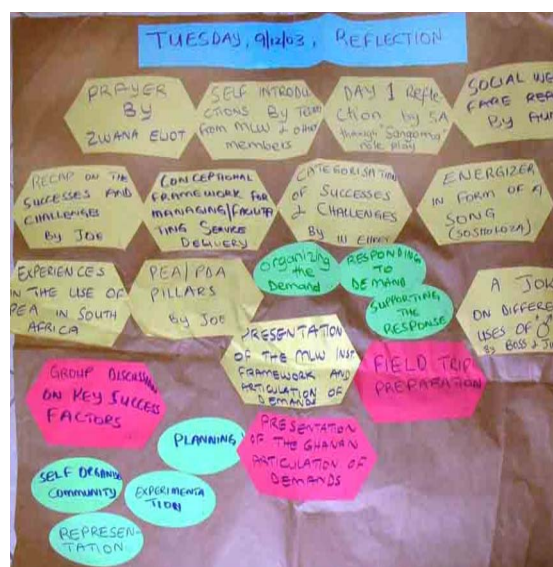 TUESDAY, 9/12/03, REFLECTION
PRAYER
BY
ZWANA ELIOT
SELF INTRODU
CTIONS BY
from MLW & other
members
DAY 1 Refle-
ction by SA
through "Sangoma"
role play
SOCIAL WEL
FARE
BY
RECAP ON THE
SUCCESSES AND
CHALLENGES
By JOE
CONCEPTIONAL
FRAMEWORK FOR
MANAGING/FACILITA
TING SERVICE
DELIVERY
CATEGORISATION
OF SUCCESSES
& CHALLENGES
By
ENERGIZER
IN FORM OF A
SONG
(SOSHOLOZA)
EXPERIENCES
IN THE USE OF
PEA IN SOUTH
AFRICA
PEA/PDA
PILLARS
By JOE
organizing
the
Demand
RESPONDING
TO
DEMAND
SUPPORTING
THE
RESPONSE
A JOK
ON DIFFERE
USES OF
By BOSS &
PRESENTATION
OF THE MLW INST.
FRAMEWORK AND
ARTICULATION OF
DEMANDS
FIELD TRIP
PREPARATION
GROUP DISCUSSION
ON KEY SUCCESS
FACTORS
PRESENTATION
OF THE GHANAN
ARTICULATION OF
DEMANDS
PLANNING
SELF ORGANISE
COMMUNITY
EXPERIMENTA
TION
REPRESEN-
TATION